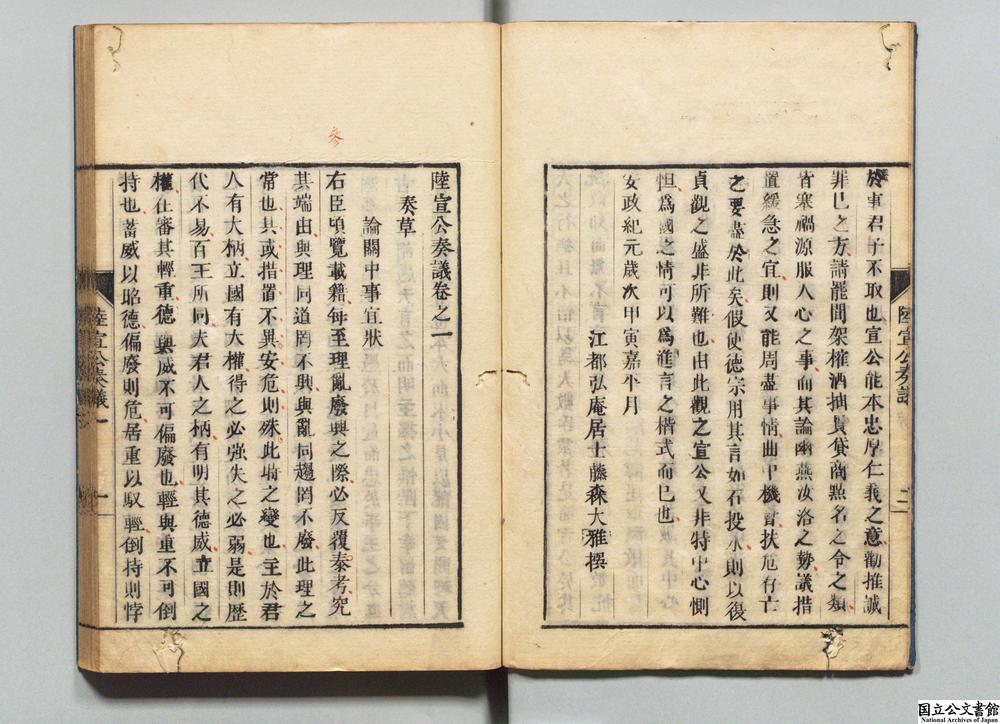 於事君子不取也宣公能本忠厚仁義之意勸推誠
罪已之方請罷間架榷酒抽貫貸商點名之令之類
皆寒禍源服人心之事而其論幽燕汝洛之勢議措
置緩急之宜則又能周盡事情曲中機會扶危存亡
之要盡於此矣假使德宗用其言如石投水則以復
貞觀之盛非所難也由此觀之宣公又非特中心惻
怛爲國之情可以爲進言之楷式而已也
安政紀元歲次甲寅嘉平月
江都弘庵居士藤森大雅撰
陸宣公奏議
二
陸宣公奏議卷之一
奏草
論關中事宜狀
右臣頃覽載籍每至理亂廢興之際必反覆參考究
其端由與理同道罔不興與亂同趨罔不廢此理之
常也其或措置不異安危則殊此時之變也至於君
人有大柄立國有大權得之必強失之必弱是則歷
代不易百王所同夫君人之柄有明其德威立國之
權在審其輕重德與威不可偏廢也輕與重不可倒
持也蓄威以昭德偏廢則危居重以馭輕倒持則悖
陸宣公奏議
一
參
国立公文書館
National Archives of Japan